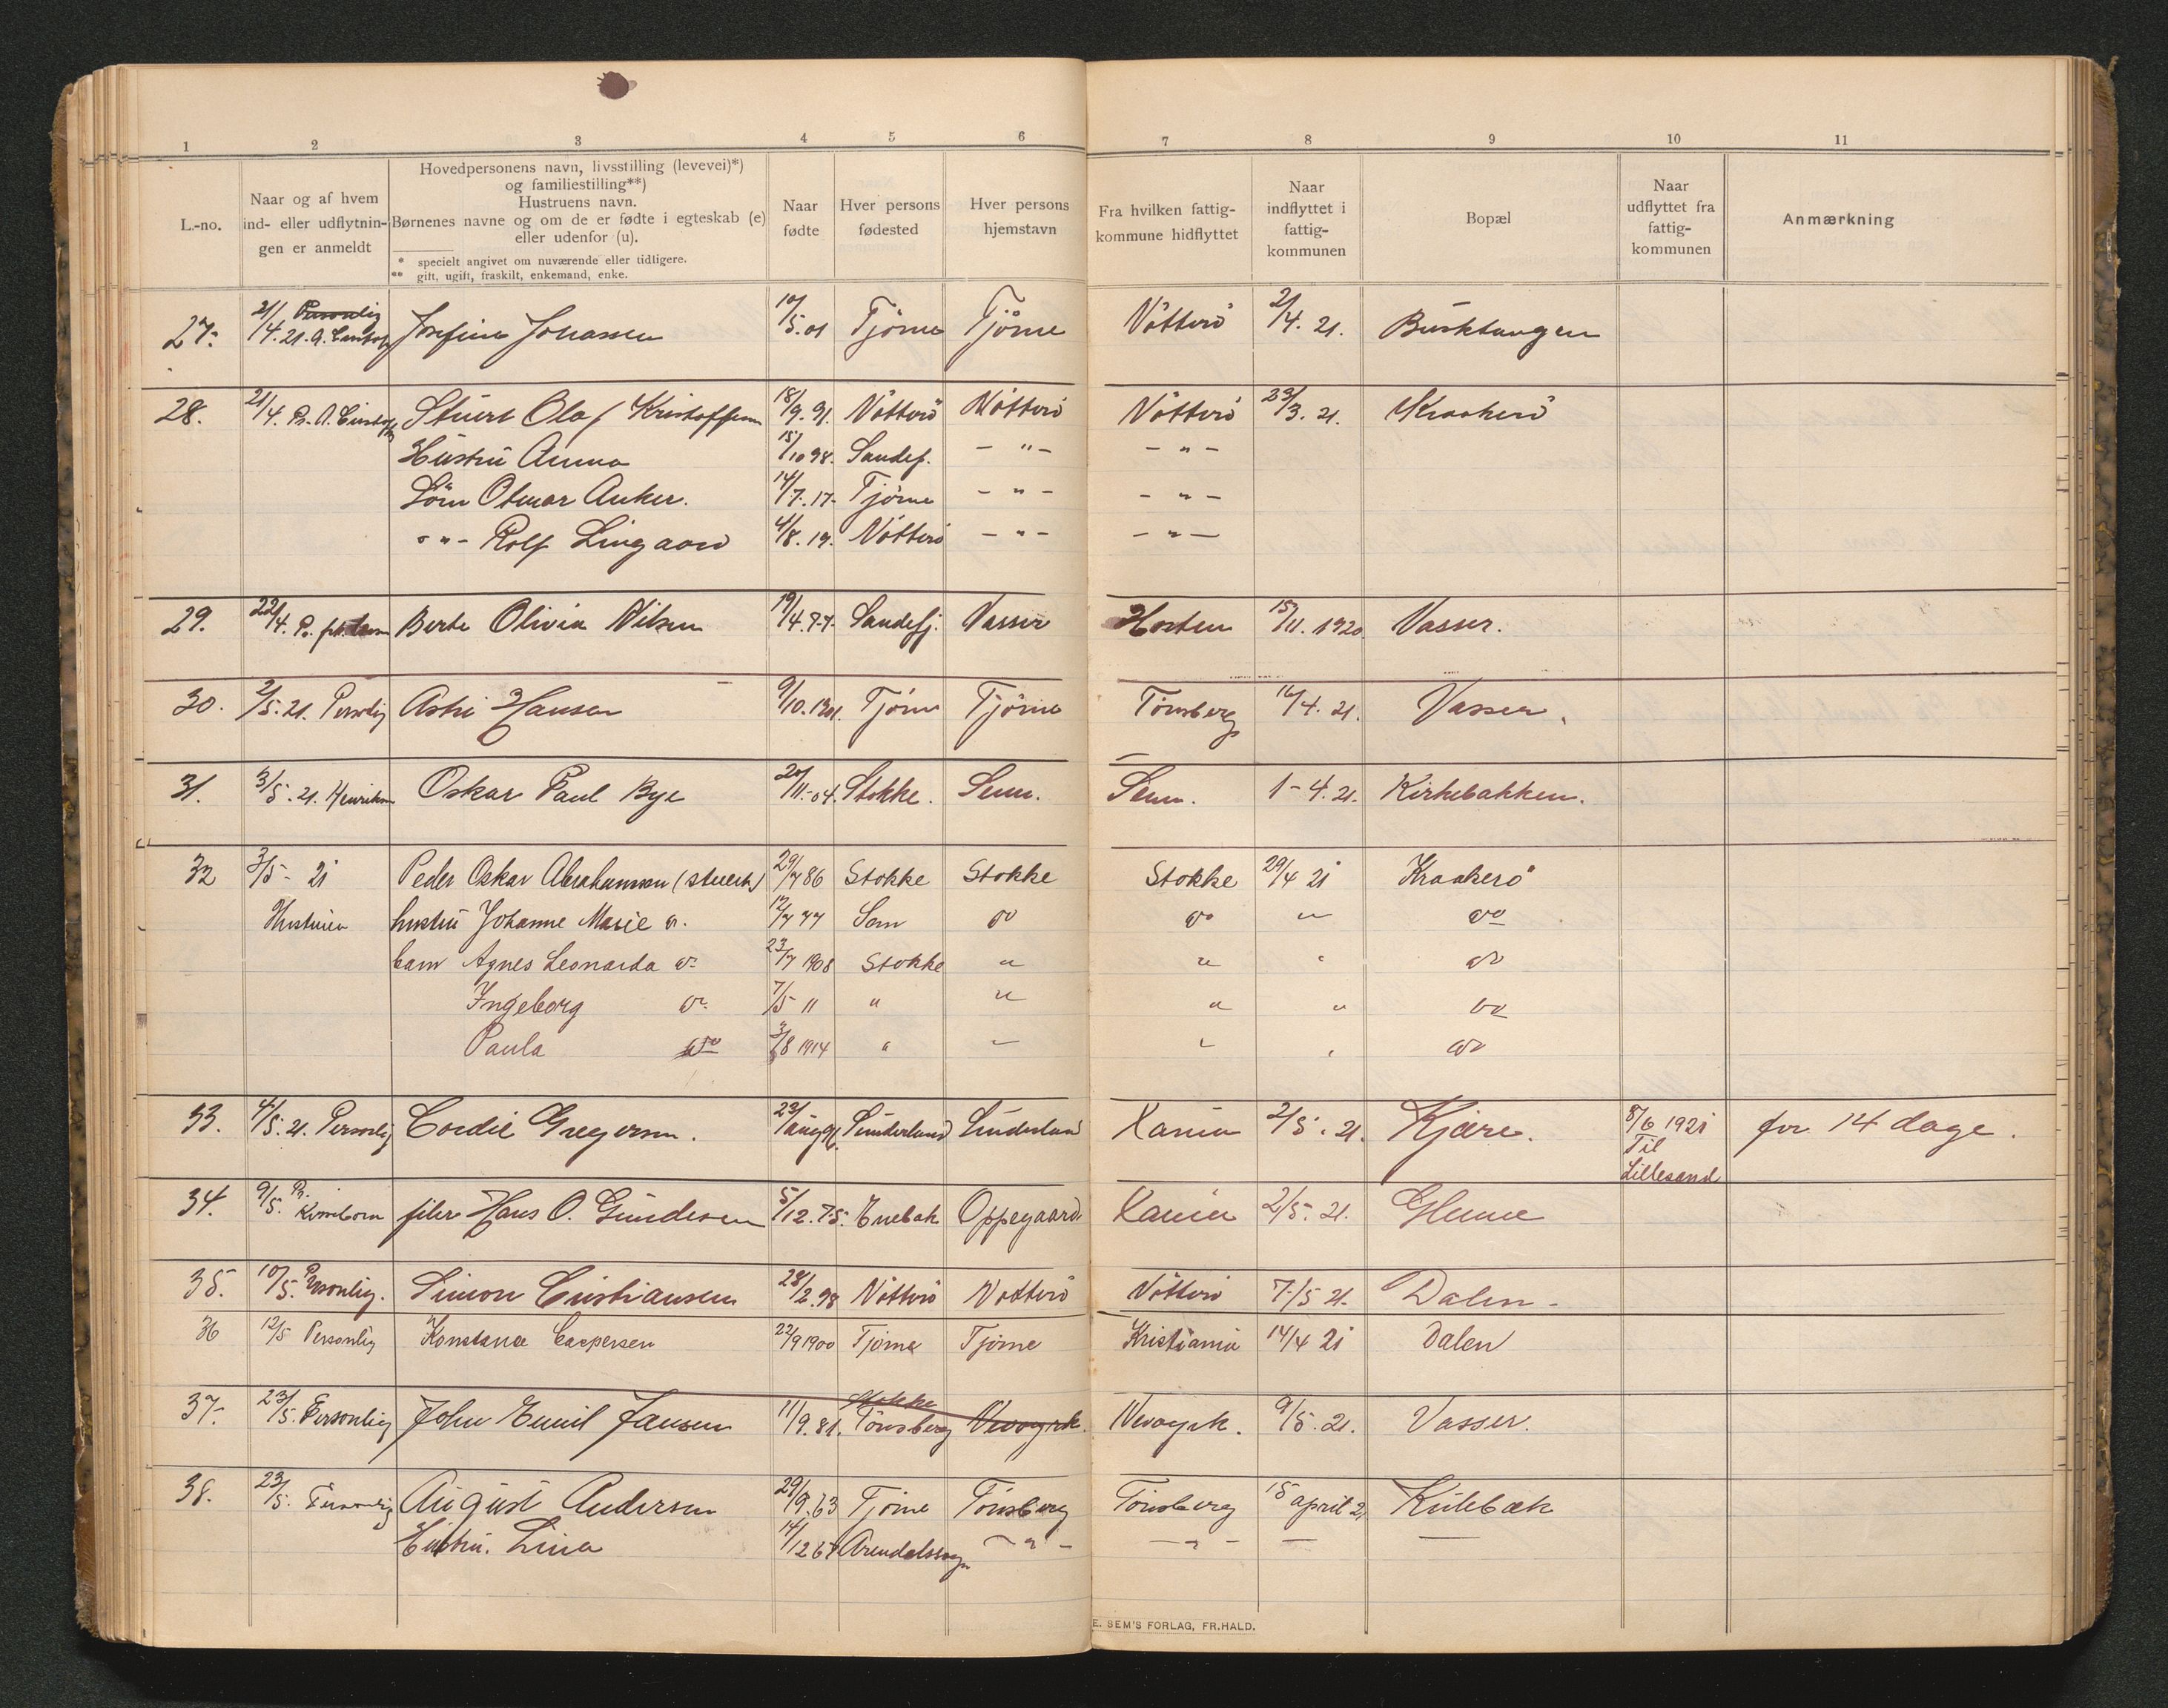 1 2 3 4 5 6 7 8 9 10 11
L.-no.
Naar og af hvem
ind- eller udflytnin-
gen er anmeldt
Hovedpersonens navn, livsstilling (levevei)*)
og familiestilling**)
Hustruens navn.
Børnenes navne og om de er fødte i egteskab (e)
eller udenfor (u).
* specielt angivet om nuværende eller tidligere.
** gift, ugift, fraskilt, enkemand, enke.
Naar
fødte
Hver persons
fødested
Hver persons
hjemstavn
Fra hvilken fattig-
kommune hidflyttet
Naar
indflyttet i
fattig-
kommunen
Bopæl
Naar
udflyttet fra
fattig-
kommunen
Anmærkning
27. 21/4.21. Personlig Josefine Johansen 10/5.01 Tjöme Tjöme Nötterö 2/4.21. Busktangen
28. 21/4. Stuert Olaf Kristoffersen 18/9.91. Nötterö Nötterö Nötterö 23/3.21. Kraakerö
Hustru Anna 15/10 98. Sandef. - " - - " -
Sön Otmar Anker. 14/7.17. Tjöme - " - - " -
- " - Rolf Lingaard 4/8.19. Nötterö - " - - " -
29. 22/4. Berte Olivia Nilsen 19/4.77. Sandefj. Vasser Horten 15/11.1920. Vasser.
30. 2/5.21. Personlig Astri Hansen 9/10.1901. Tjöme Tjöme Tönsberg 16/4.21. Vasser.
31. 3/5.21. Henriksen Oskar Paul Bye 20/11.-04. Stokke. Sem. Sem. 1-4.21. Kirkebakken.
32 3/5 - 21 Peder Oskar Abrahamsen (stuert) 29/7 86 Stokke Stokke Stokke 29/4 21 Kraakerö
Hustruen hustru Johanne Marie do. 12/7 77 Sem do do " do
barn Agnes Leonarda do. 23/7 1908 Stokke " " " do
Ingeborg do. 7/5 11 " " " " do
Paula do 3/8 1914 " " " " do
33. 4/5.21. Personlig Cordie Gregersen. 23/aug 96. Sunderland Sunderland Xania 2/5.21. Kjære. 8/6 1921 for 14 dage.
Til
Lillesand
34. 9/5. P. filer Hans O. Gundersen 5/12.75. Enebak Oppegaard. Xania 2/5.21. Glenne
35. 10/5. Personlig. Simon Cristiansen 28/2.98 Nötterö Nötterö Nötterö 7/5 21. Dalen -
36 12/5 Personlig Konstance Caspersen 22/9 1900 Tjöme Tjöme Kristiania 14/4 21 Dalen
37. 23/5. Personlig John Emil Jansen 11/9.81. Stokke Tönsberg Newyork. Newyork. 9/5.21. Vasser.
38. 23/5. Personlig August Andersen 29/9.63 Tjöme Tönsberg Tönsberg 15 april 21 Külebæk
Hustru. Lina 14/12 67 Arendalssogn - " - - " - — —
E. SEM'S FORLAG, FR.HALD.